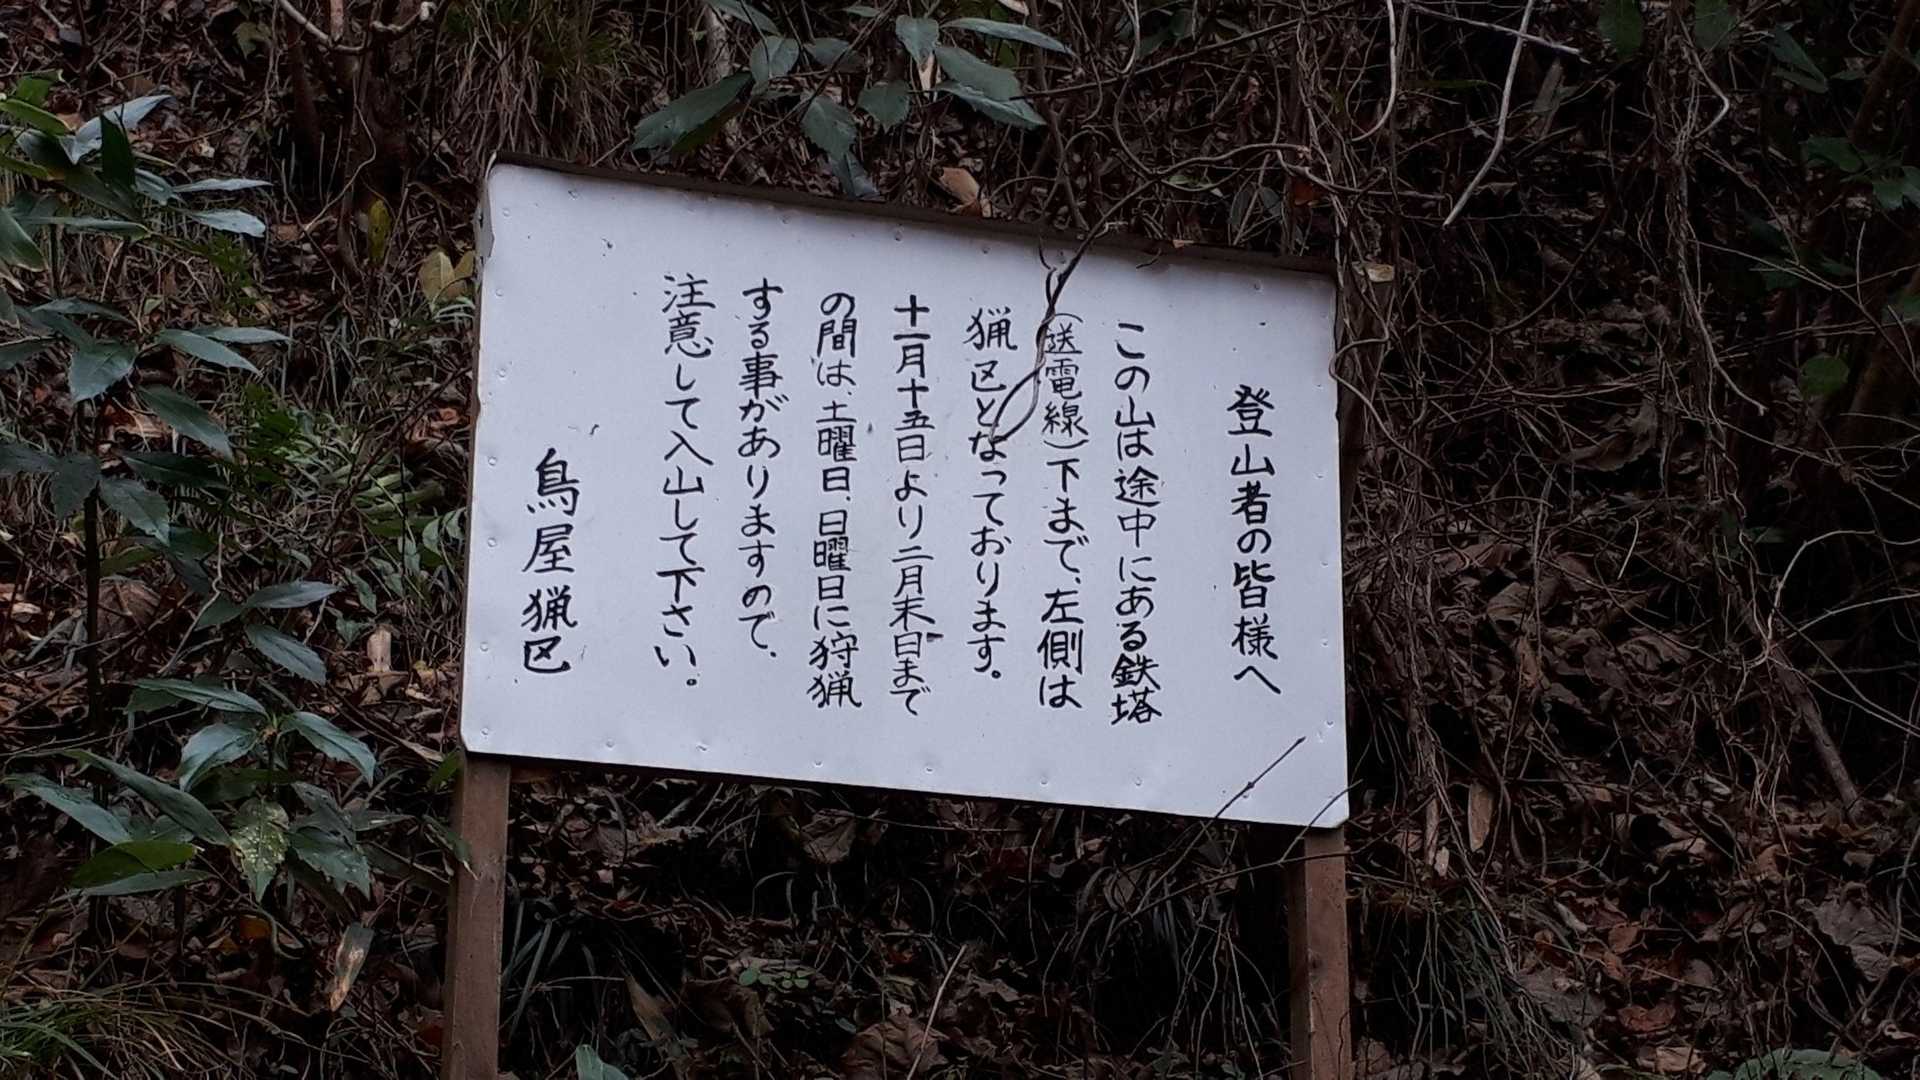 登山者の皆様へ
この山は途中にある鉄塔
(送電線)下まで、左側は
猟区となっております。
十一月十五日より二月末日まで
の間は、土曜日、日曜日に狩猟
する事がありますので、
注意して入山して下さい。
鳥屋猟区